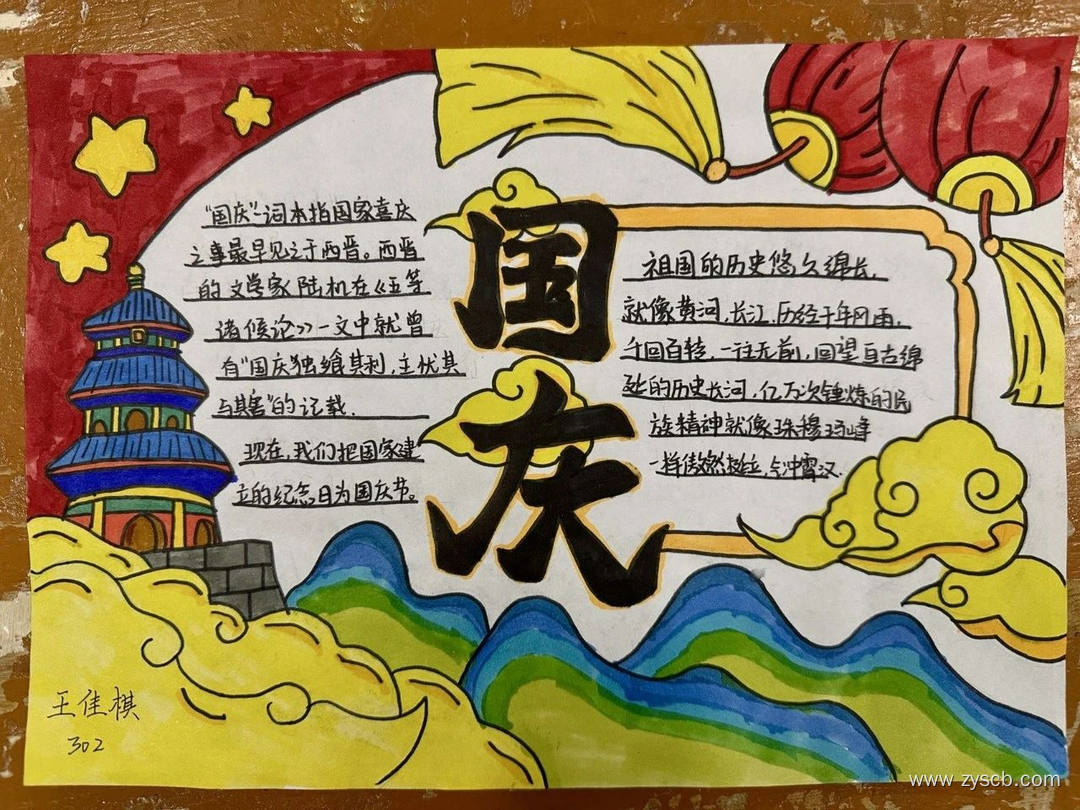 "国庆"一词本指国家喜庆
之事最早见之于西晋。西晋
的文学家陆机在《五等
诸候论》一文中就曾
有"国庆独飨其利,主忧其
与其害"的记载.
现在,我们把国家建
立的纪念日为国庆节。
国
庆
祖国的历史悠久绵长.
就像黄河.长江.历经千年风雨.
千回百转.一往无前.回望自古绵
延的历史长河.亿万次锤炼的民
族精神就像珠穆玛峰
一样傲然挺立.气冲霄汉.
王佳棋
302
www.zyscb.com